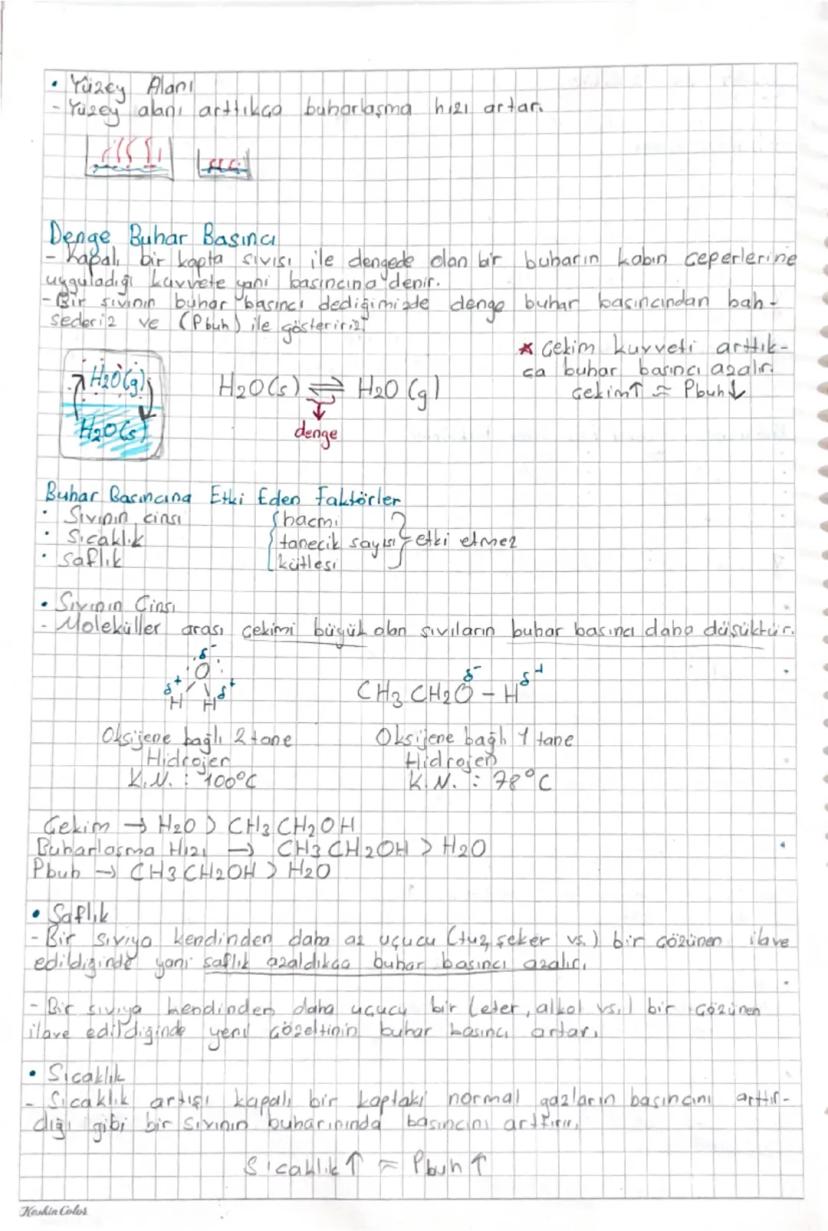 • Yüzey Alanı
- Yüzey alanı arttıkça buharlaşma hızı artar.
Denge Buhar Basıncı
- Kapalı bir kapta sıvısı ile dengede olan bir buharın kabın çeperlerine
uyguladığı kuvvete yani basıncına denir.
- Bir sıvının buhar basıncı dediğimizde denge buhar basıncından bah-
sederiz ve (Pbuh) ile gösteririz.
* Çekim kuvveti arttık-
ça buhar basıncı azalır.
Çekim↑ ≈ Pbuh↓
H2O(g)
H2O(s)
H2O(s) ⇌ H2O(g)
denge
Buhar Basıncına Etki Eden Faktörler
• Sıvının cinsi
• Sıcaklık
• Saflık
hacmi
tanecik sayısı
kütlesi
etki etmez
• Sıvının Cinsi
- Moleküller arası çekimi büyük olan sıvıların buhar basıncı daha düşüktür.
δ-
O
δ+ δ+
H H
δ- δ+
CH3CH2O - H
Oksijene bağlı 2 tane
Hidrojen
K.N. : 100°C
Oksijene bağlı 1 tane
Hidrojen
K.N. : 78°C
Çekim → H2O > CH3CH2OH
Buharlaşma Hızı → CH3CH2OH > H2O
Pbuh → CH3CH2OH > H2O
• Saflık
- Bir sıvıya kendinden daha az uçucu (tuz, şeker vs.) bir çözünen ilave
edildiğinde yani saflık azaldıkça buhar basıncı azalır.
- Bir sıvıya kendinden daha uçucu bir (eter, alkol vs.) bir çözünen
ilave edildiğinde yeni çözeltinin buhar basıncı artar.
• Sıcaklık
- Sıcaklık artışı kapalı bir kaptaki normal gazların basıncını arttır-
dığı gibi bir sıvının buharınında basıncını arttırır.
Sıcaklık↑ ≈ Pbuh↑
Keskin Color